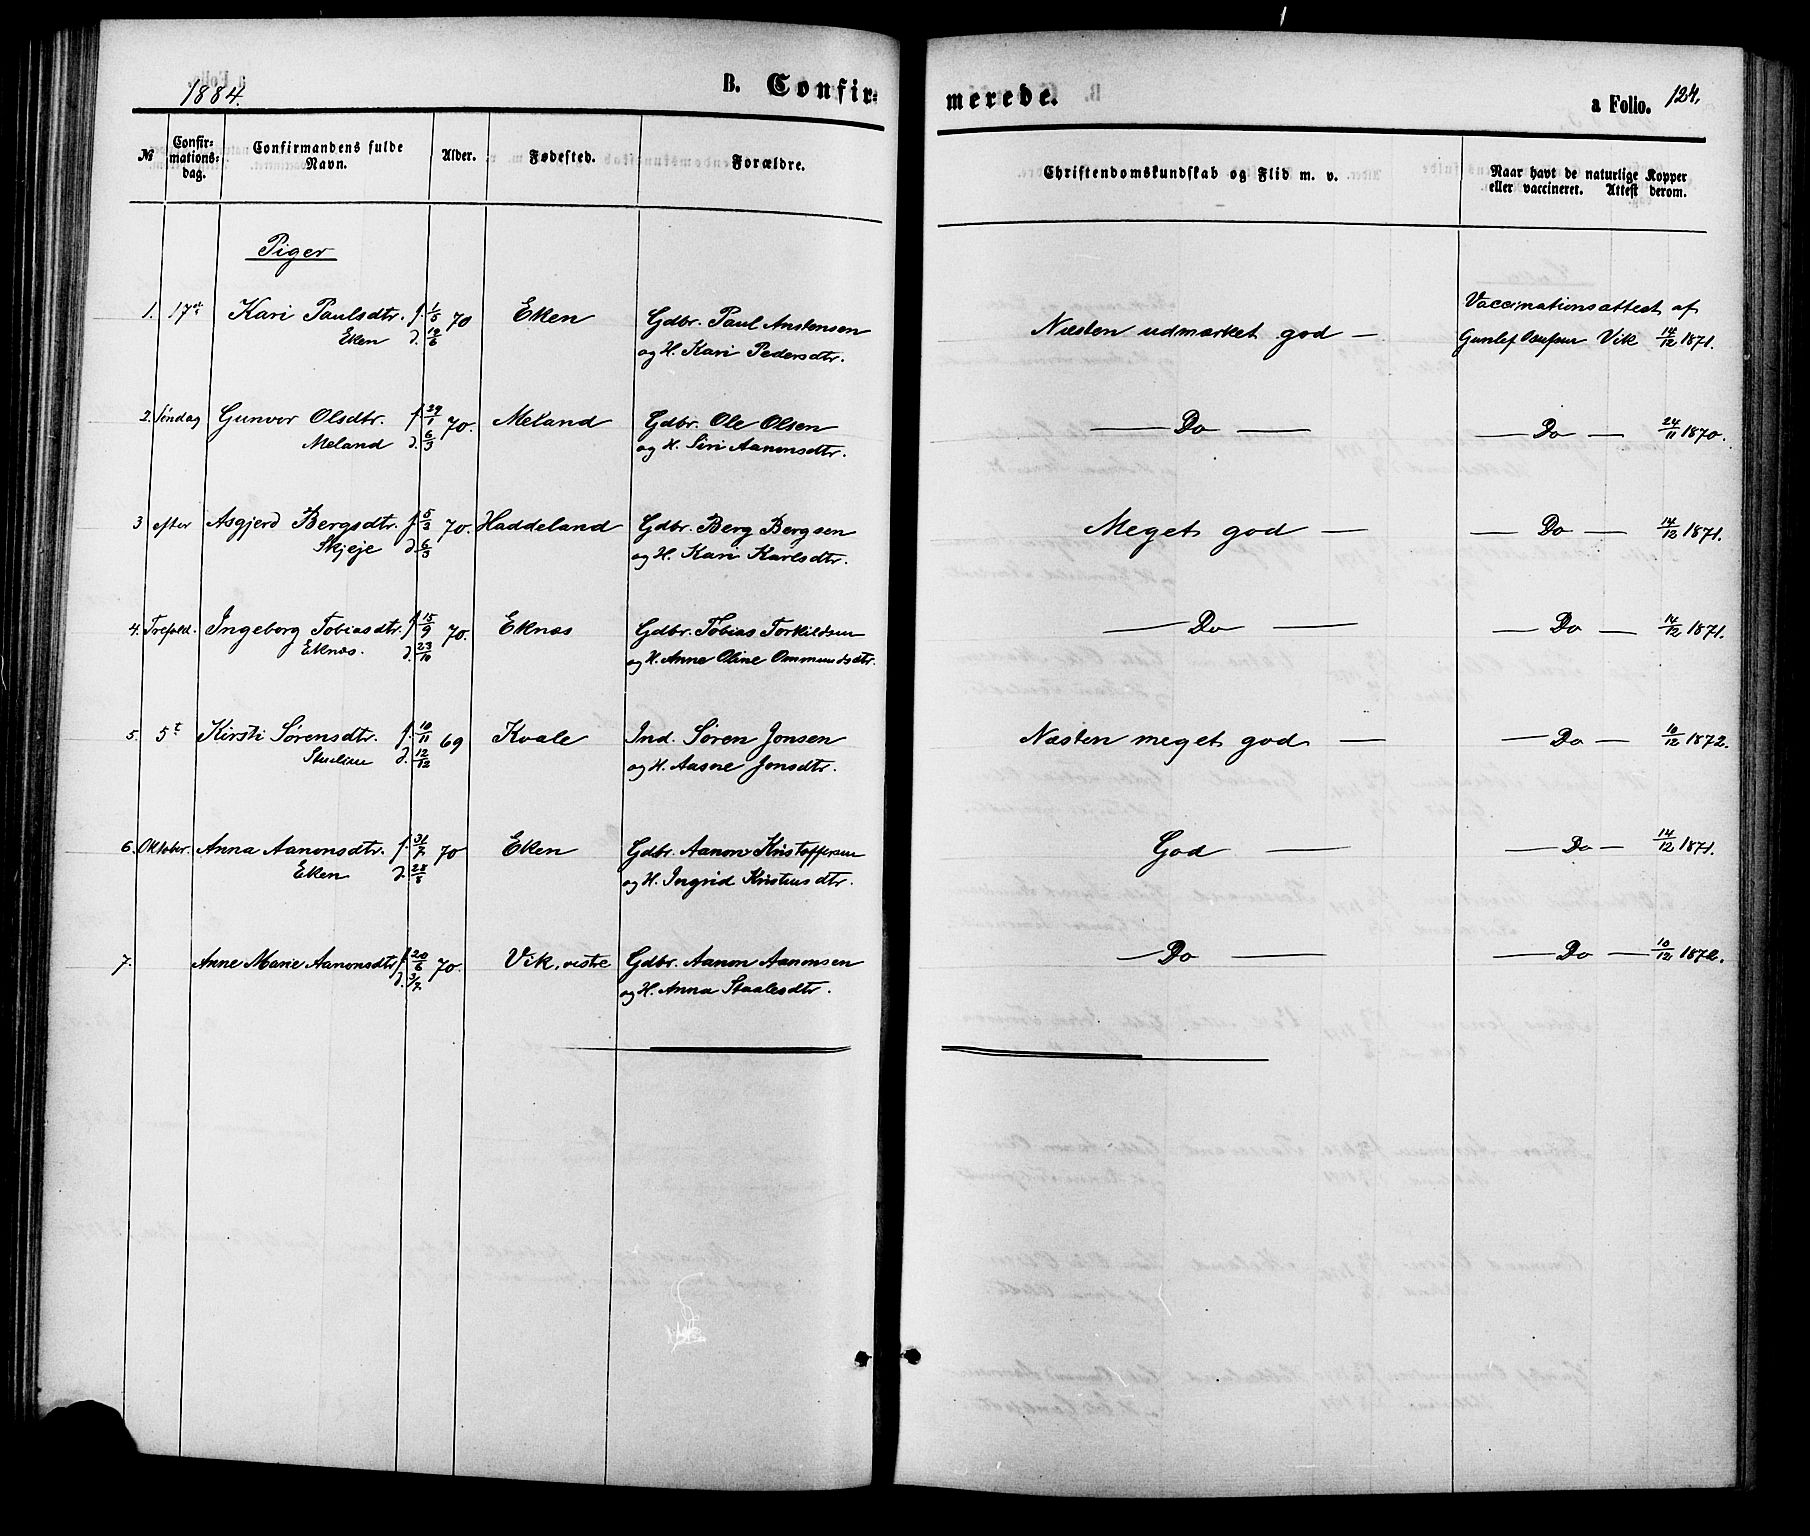 1884.
B. Confirmerede.
a Folio. 124.
№
Confirmationsdag.
Confirmandens fulde Navn.
Alder.
Fødested.
Forældre.
Christendomskundskab og Flid m. v.
Naar havt de naturlige Kopper eller vaccineret. Attest derom.
Piger
1. 17de Kari Paulsdtr. f. 1/5 70 Eken Gdbr. Paul Anstensen Næsten udmærket god — Vaccinationsattest af
Eken d. 19/6 og H. Kari Pedersdtr. Vik 14/12 1871.
2. Søndag Gunvor Olsdtr. f. 29/1 70. Meland Gdbr. Ole Olsen — Do — — Do — 24/11 1870.
Meland d. 6/3 og H. Siri Aanonsdtr.
3 efter Asgjerd Bergsdtr. f. 5/3 70. Haddeland Gdbr. Berg Bergsen Meget god — — Do — 14/12 1871.
Skjeje d. 6/3 og H. Kari Karlsdtr.
4. Trefold. Ingeborg Tobiasdtr. f. 15/9 70. Eknæs Gdbr. Tobias Torkildsen — Do — — Do — 14/12 1871.
Eknæs. d. 23/10 og H. Anne Oline Ommundsdtr.
5. 5t Kirsti Sørensdtr. f. 10/11 69 Kvale Ind. Søren Jonsen Næsten meget god — — Do — 10/12 1872.
d. 12/12 og H. Aasne Jonsdtr.
6. Oktober. Anna Aanonsdtr. f. 31/7 70 Eken Gdbr. Aanon Kristoffersen God — — Do — 14/12 1871.
Eken d. 28/8 og H. Ingrid Kristensdtr.
7. Anne Marie Aanonsdtr. f. 20/6 70. Vik, vestre Gdbr. Aanon Aanonsen — Do — — Do — 10/12 1872.
d. 3/7. og H. Anna Staalesdtr.